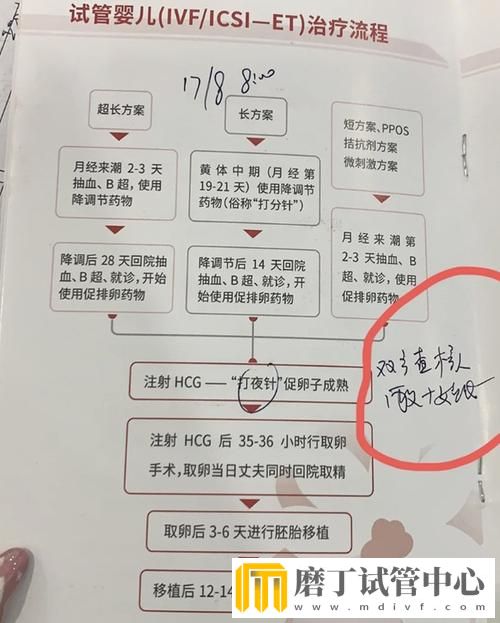 试管婴儿(IVF/ICSI—ET)治疗流程
17/8 8:00
超长方案
长方案
短方案、PPOS
拮抗剂方案
微刺激方案
月经来潮 2-3 天
抽血、B 超，使用
降调节药物
黄体中期（月经第
19-21 天）使用降调节
药物(俗称“打分针”)
月经来潮第
2-3 天抽血、B
超、就诊，使用
促排卵药物
降调后 28 天回院抽
血、B 超、就诊，开始
使用促排卵药物
降调节后 14 天回院
抽血、B 超、就诊，开
始使用促排卵药物
注射 HCG ——“打夜针”促卵子成熟
注射 HCG 后 35-36 小时行取卵
手术，取卵当日丈夫同时回院取精
取卵后 3-6 天进行胚胎移植
移植后 12-14
磨丁试管中心
www.mdivf.com